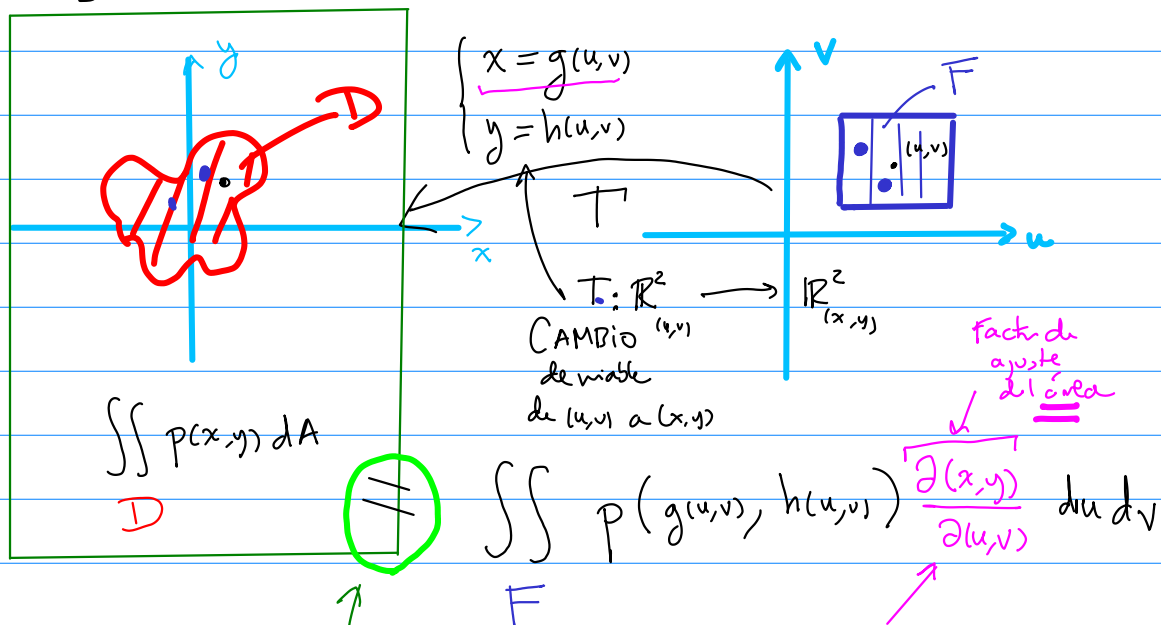 y
x
D
x = g(u,v)
y = h(u,v)
T
T: ℝ²(u,v) → ℝ²(x,y)
CAMBIO
de variable
de (u,v) a (x,y)
V
F
(u,v)
u
Factor de
ajuste
del área
∬ p(x,y) dA
D
=
∬ p(g(u,v), h(u,v)) ∂(x,y)/∂(u,v) du dv
F